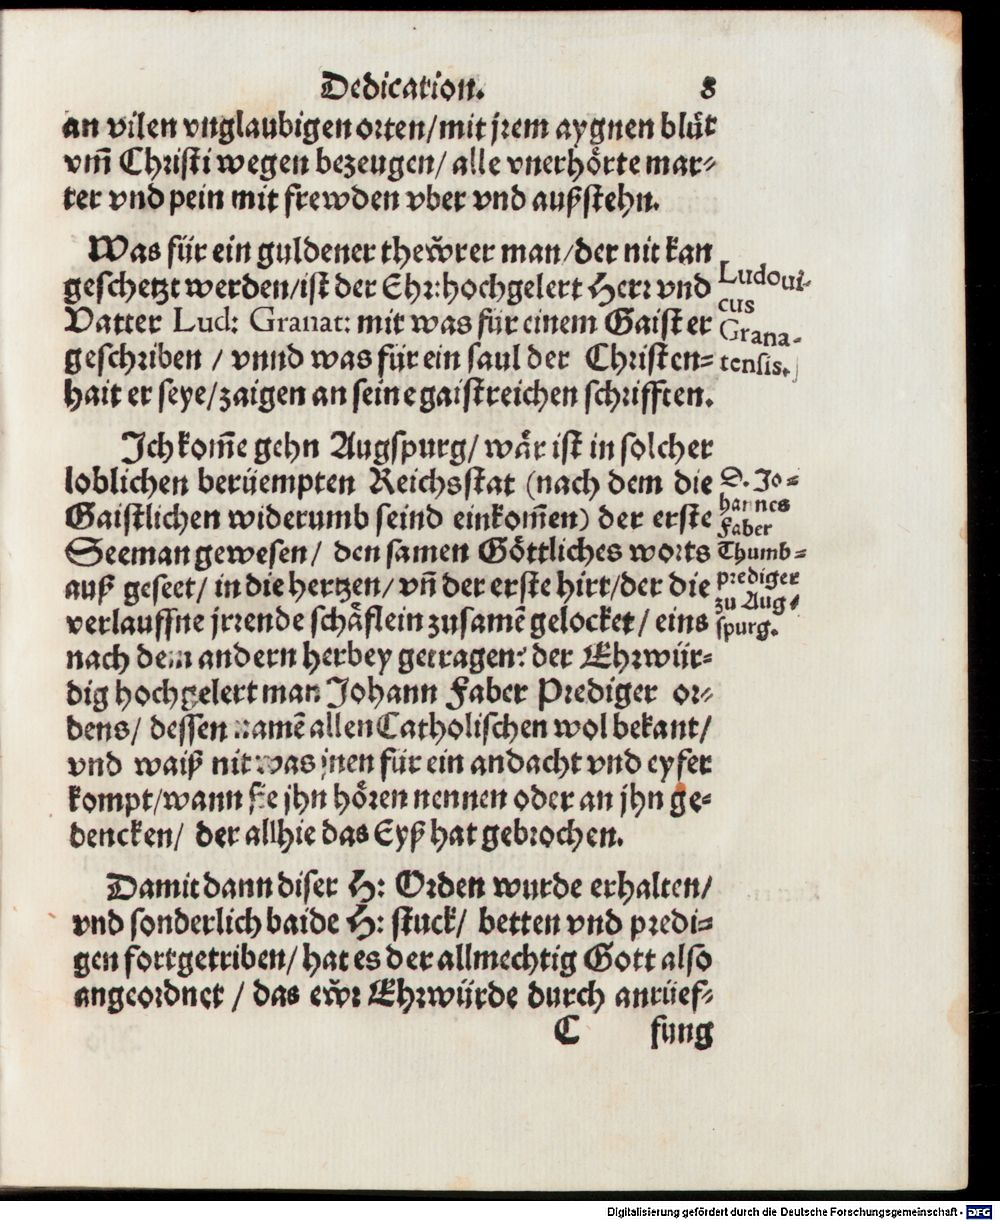 Dedication. 8
an vilen vnglaubigen orten/mit jrem aygnen blůt
vm̃ Christi wegen bezeugen/ alle vnerhörte mar⸗
ter vnd pein mit frewden vber vnd außstehn.
Was für ein guldener thew̌rer man/der nit kan
geschetzt werden/ist der Ehr:hochgelert Herr vnd
Vatter Lud: Granat: mit was für einem Gaist er
geschriben / vnnd was für ein saul der Christen⸗
hait er seye/zaigen an seine gaistreichen schrifften.
Ludoui-
cus
Grana-
tensis.
Ich kom̃e gehn Augspurg/ wår ist in solcher
loblichen berüempten Reichsstat (nach dem die
Gaistlichen widerumb seind einkom̃en) der erste
Seeman gewesen/ den samen Göttliches worts
auß geseet/ in die hertzen/ vñ der erste hirt/der die
verlauffne jrrende schäflein zusamẽ gelocket/ eins
nach dem andern herbey getragen: der Ehrwür⸗
dig hochgelert man Johann Faber Prediger or⸗
dens/ dessen namẽ allen Catholischen wol bekant/
vnd waiß nit was jnen für ein andacht vnd eyfer
kompt/wann sie jhn hören nennen oder an jhn ge⸗
dencken/ der allhie das Eyß hat gebrochen.
D. Jo⸗
hannes
Faber
Thumb⸗
prediger
zu Aug⸗
spurg.
Damit dann diser H: Orden wurde erhalten/
vnd sonderlich baide H: stuck/ betten vnd predi⸗
gen fortgetriben/ hat es der allmechtig Gott also
angeordnet / das ew̌r Ehrwürde durch anrüef⸗
C fung
Digitalisierung gefördert durch die Deutsche Forschungsgemeinschaft - DFG